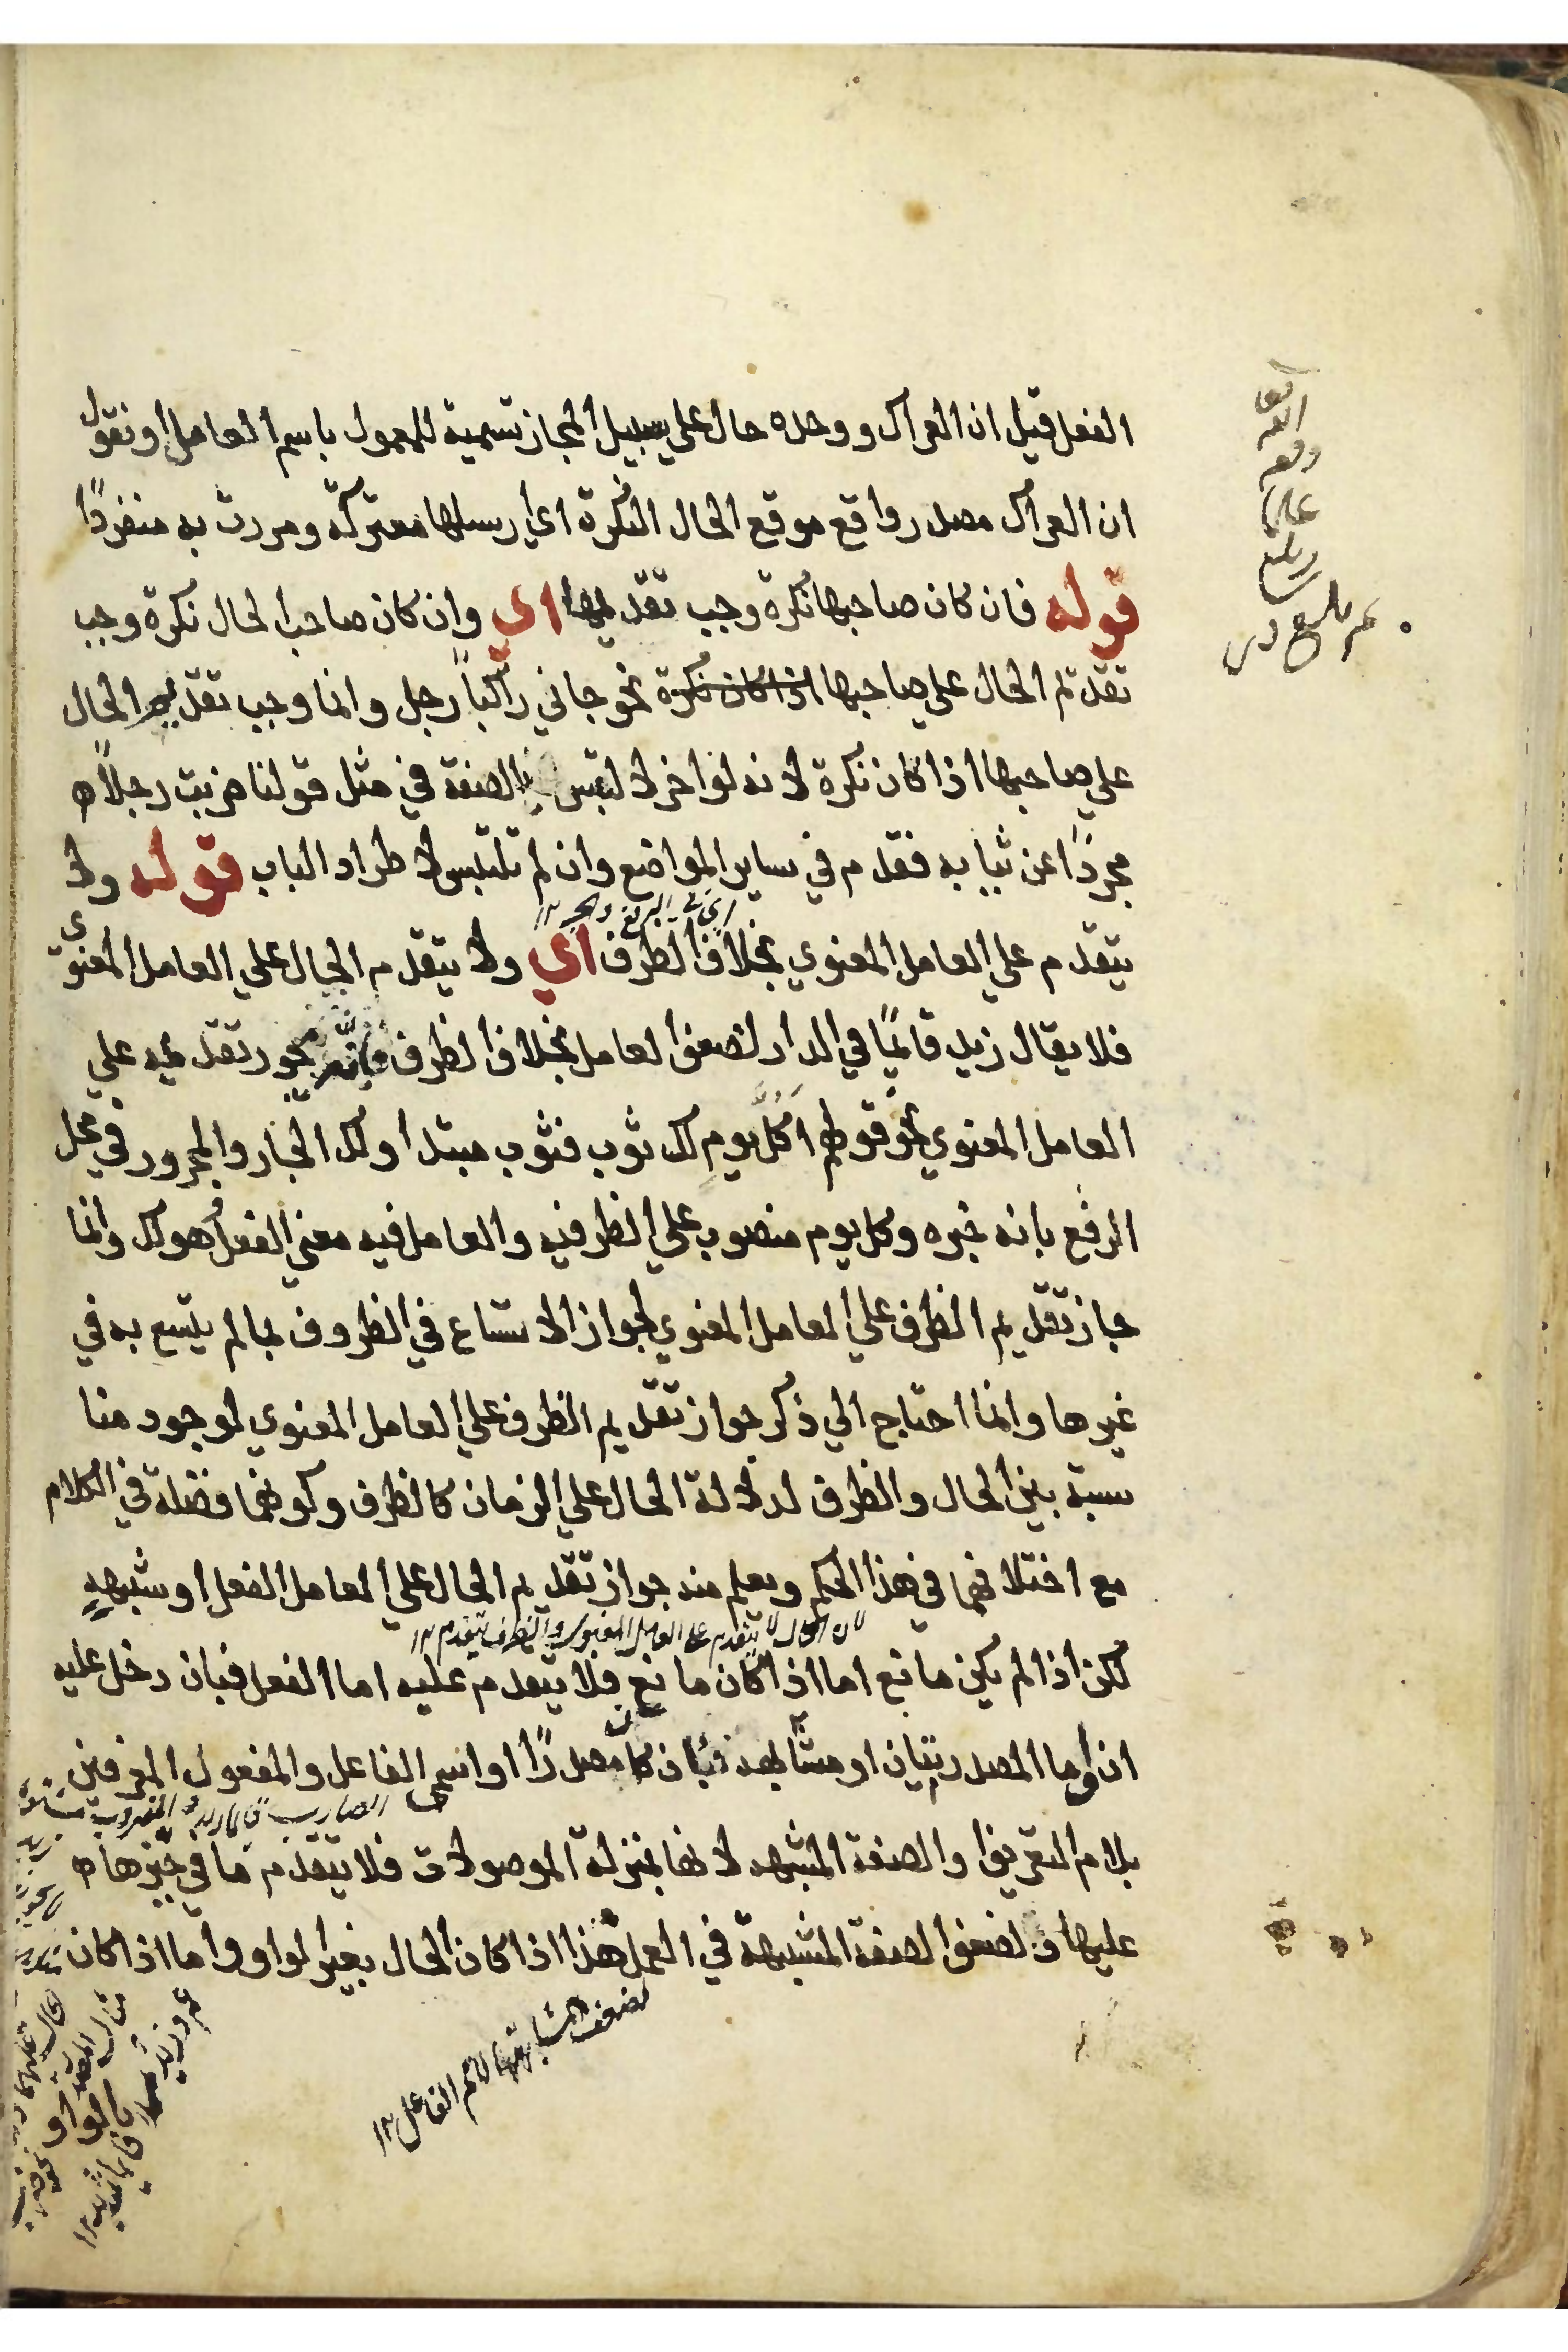 الفعل قيل ان العراك ووحده حال علي سبيل المجاز تسمية للمعمول باسم العامل او نقول
ان العراك مصدر واقع موقع الحال النكرة اي ارسلها معتركة ومررت به منفردًا
قوله فان كان صاحبها نكرة وجب تقديمها اي وان كان صاحب الحال نكرة وجب
تقديم الحال علي صاحبها اذا كان نكرة نحو جاني راكبًا رجل وانما وجب تقديم الحال
علي صاحبها اذا كان نكرة لانه لو اخر لالتبس بالصفة في مثل قولنا ضربت رجلًا
مجردًا عن ثيابه فقدم في ساير المواضع وان لم تلتبس لاطراد الباب قوله ولا
يتقدم علي العامل المعنوي بخلاف الظرف اي ولا يتقدم الحال علي العامل المعنوي
فلا يقال زيد قائمًا في الدار لضعف العامل بخلاف الظرف فانه يجوز تقديمه علي
العامل المعنوي نحو قولهم اكل يوم لك ثوب فثوب مبتدا ولك الجار والمجرور في محل
الرفع بانه خبره وكل يوم منصوب علي الظرفيه والعامل فيه معني الفعل هو لك وانما
جاز تقديم الظرف علي العامل المعنوي لجواز الاتساع في الظروف بما لم يتسع به في
غيرها وانما احتاج الي ذكر جواز تقديم الظرف علي العامل المعنوي لوجود منا
سبة بين الحال والظرف لدلالة الحال علي الزمان كالظرف وكونهما فضلة في الكلام
مع اختلافهما في هذا الحكم ويعلم منه جواز تقديم الحال علي العامل الفعل او شبهه
لان الحال لا يتقدم على العامل المعنوي والظرف يتقدم ١٢
لكن اذا لم يكن مانع اما اذا كان مانع فلا يتقدم عليه اما الفعل فبان دخل عليه
ان وما المصدريتان او مشابهه فبان كان مصدرًا او اسمي الفاعل والمفعول المعرفين
بلام التعريف والصفة المشبهه لانها بمنزلة الموصولات فلا يتقدم ما في حيزها
عليها ولضعف الصفة المشبهة في العمل هذا اذا كان الحال بغير الواو واما اذا كان
لضعف مشابهتها لاسم الفاعل ١٢